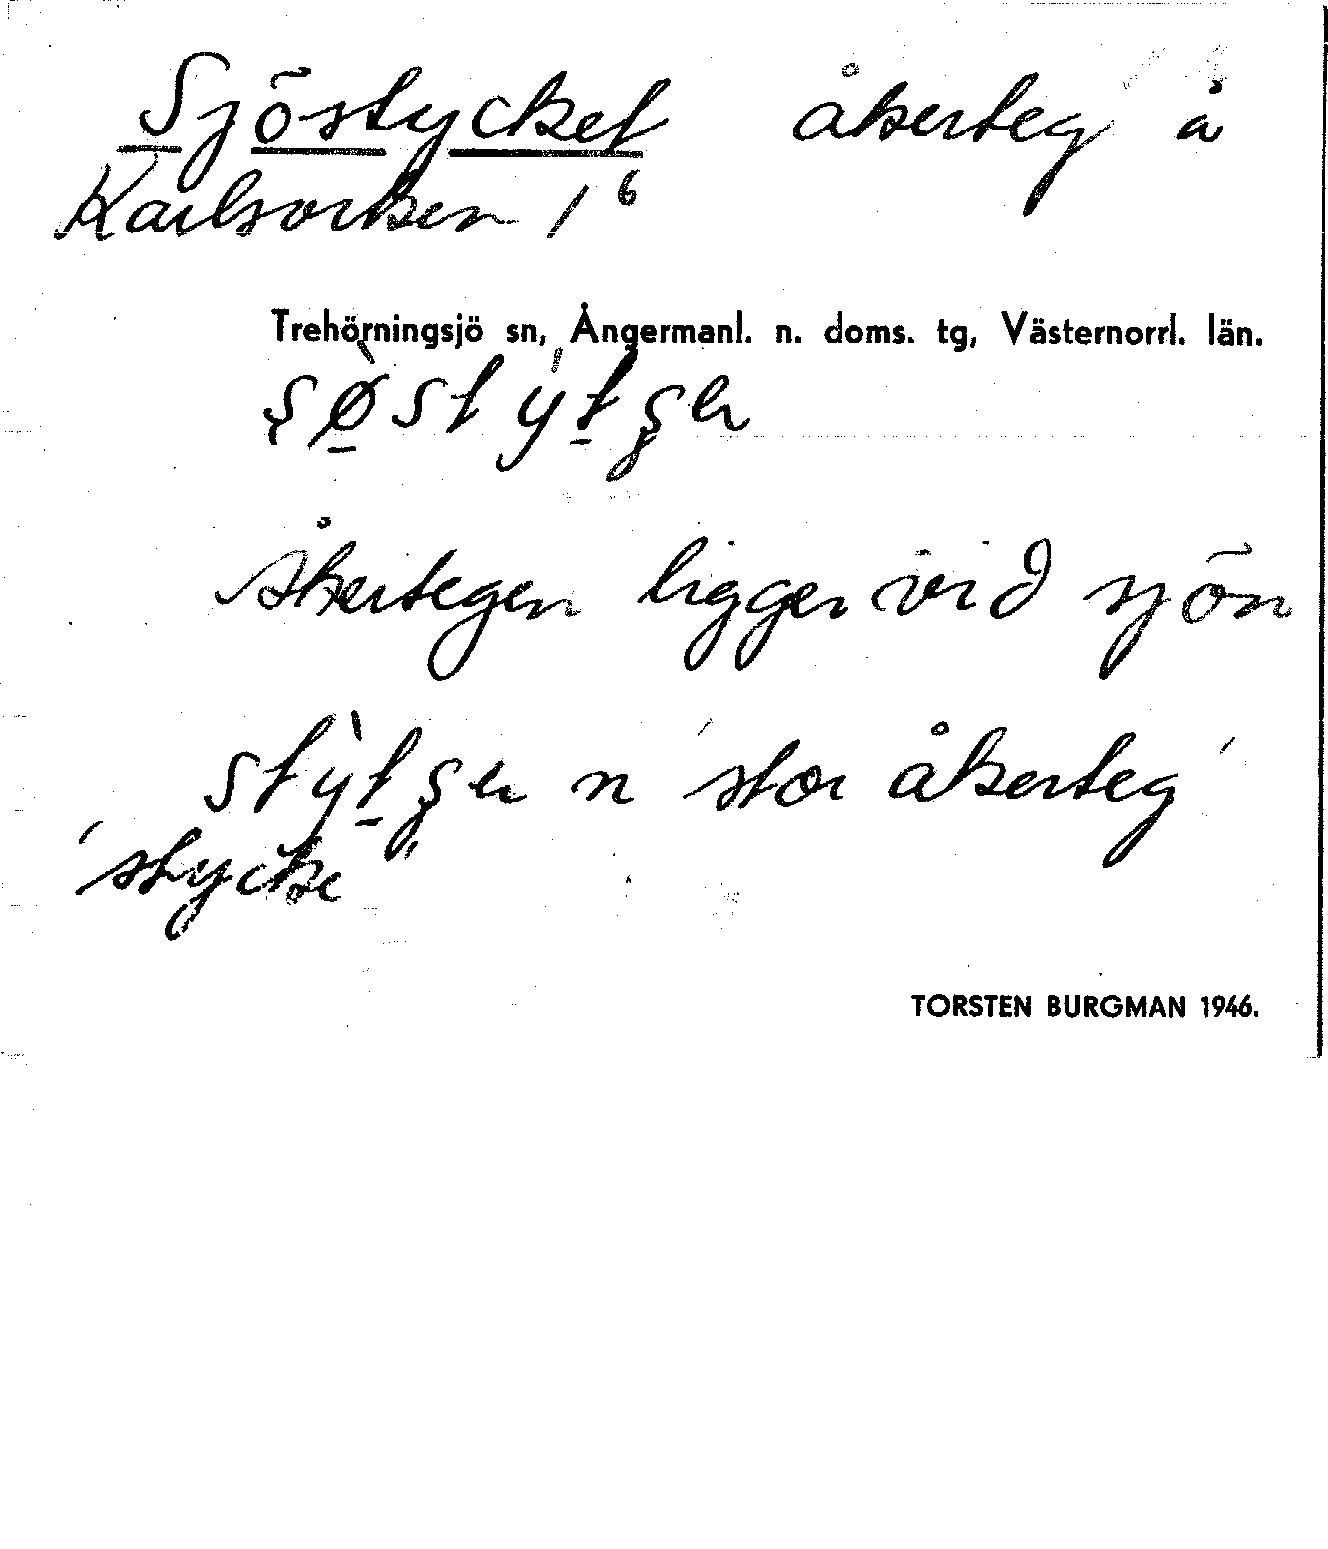 Sjöstycket åkerteg å
Karlsorken 1⁶
Trehörningsjö sn, Ångermanl. n. doms. tg, Västernorrl. län.
Åkertegen ligger vid sjön
n 'stor åkerteg'
'stycke'
TORSTEN BURGMAN 1946.